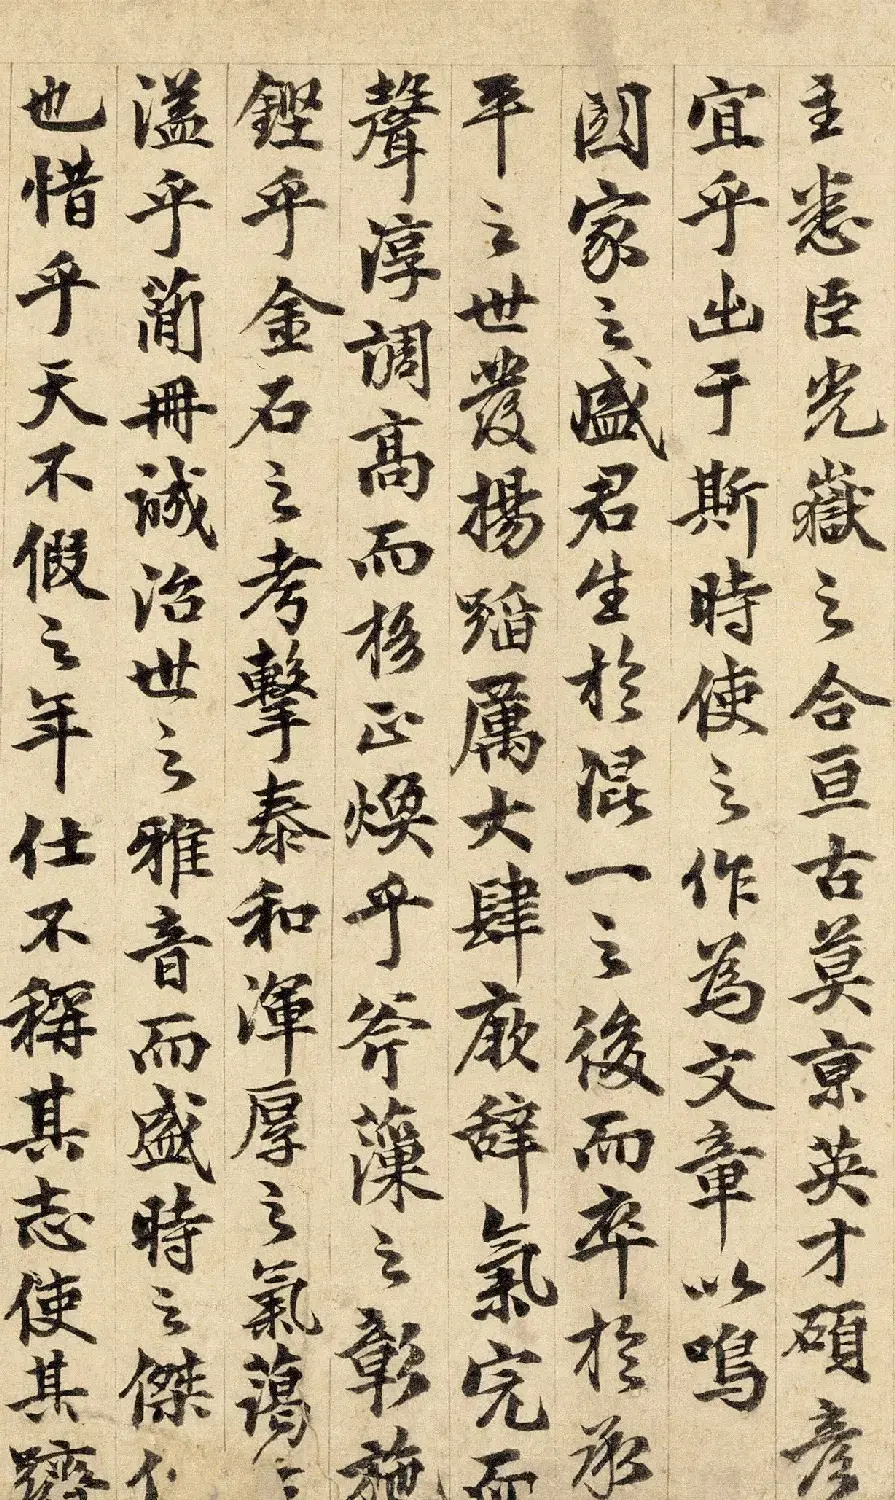 主悉臣光嶽之合亘古莫京英才碩彦
宜乎出于斯時使之作為文章以鳴
國家之盛君生於混一之後而卒於承
平之世發揚蹈厲大肆厥辭氣完而
聲淳調高而格正煥乎斧藻之彰施
鏗乎金石之考擊泰和渾厚之氣藹〻
溢乎蕳冊誠治世之雅音而盛時之傑作
也惜乎天不假之年仕不稱其志使其躋